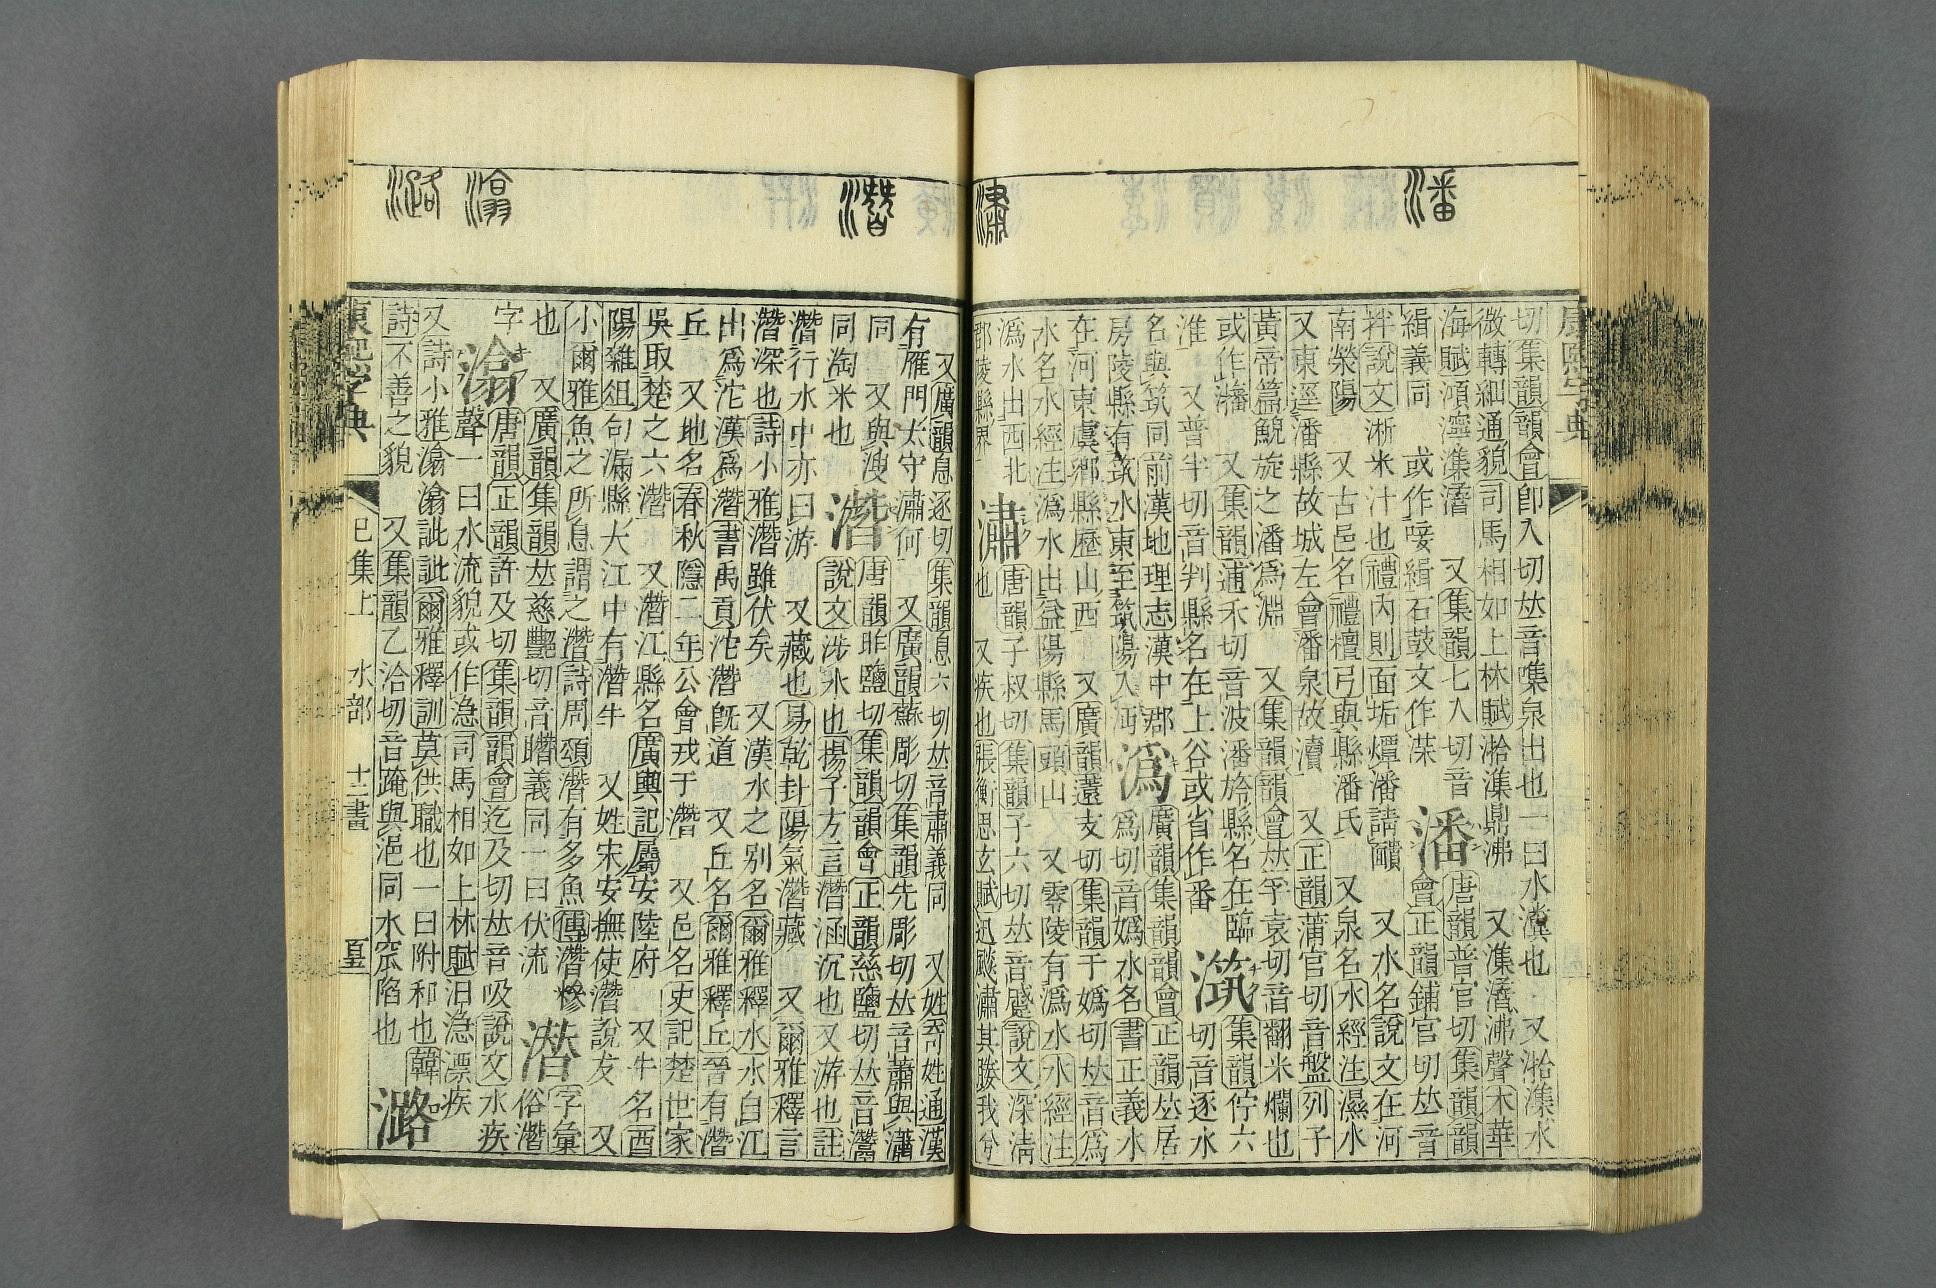 潘
潚
切集韻韻會卽入切𠀤音喋泉出也一曰水濆也 又湁潗水
微轉細通貌司馬相如上林賦湁潗鼎沸 又潗㵫沸聲木華
海賦澒濘潗㵫 又集韻七入切音
緝義同 或作㗱緝石鼓文作渫
潘
唐韻普官切集韻韻
會正韻鋪官切𠀤音
拌說文淅米汁也禮內則面垢燂潘請靧 又水名說文在河
南滎陽 又古邑名禮檀弓與縣潘氏 又泉名水經注濕水
又東逕潘縣故城左會潘泉故瀆 又正韻蒲官切音盤列子
黃帝篇鯢旋之潘爲淵 又集韻韻會𠀤孚袁切音翻米爛也
或作瀋 又集韻逋禾切音波潘旍縣名在臨
淮 又普半切音判縣名在上谷或省作番
集韻佇六
切音逐水
名與筑同前漢地理志漢中郡
房陵縣有筑水東至筑陽入沔
潙
廣韻集韻韻會正韻𠀤居
爲切音嬀水名書正義水
在河東虞鄉縣歷山西 又廣韻薳支切集韻于嬀切𠀤音爲
水名水經注潙水出益陽縣馬頭山 又零陵有潙水水經注
潙水出西北
邵陵縣界
潚
唐韻子叔切集韻子六切𠀤音蹙說文深淸
也 又疾也張衡思玄賦迅飈潚其媵我兮
潛
滃
潞
又廣韻息逐切集韻息六切𠀤音肅義同 又姓奇姓通漢
有雁門太守潚何 又廣韻蘇彫切集韻先彫切𠀤音蕭與瀟
同 又與溲
同淘米也
潛
唐韻昨鹽切集韻韻會正韻慈鹽切𠀤音灊
說文涉水也揚子方言潛涵沉也又游也註
潛行水中亦曰游 又藏也易乾卦陽氣潛藏 又爾雅釋言
潛深也詩小雅潛雖伏矣 又漢水之别名爾雅釋水水自江
出爲沱漢爲潛書禹貢沱潛旣道 又丘名爾雅釋丘晉有潛
丘 又地名春秋隱二年公會戎于潛 又邑名史記楚世家
吳取楚之六潛 又潛江縣名廣輿記屬安陸府 又牛名酉
陽雜俎句漏縣大江中有潛牛 又姓宋安撫使潛說友 又
小爾雅魚之所息謂之潛詩周頌潛有多魚傳潛糝
也 又廣韻集韻𠀤慈豔切音䁮義同一曰伏流
潜
字彙
俗潛
字
潝
唐韻正韻許及切集韻韻會迄及切𠀤音吸說文水疾
聲一曰水流貌或作㴔司馬相如上林賦汨㴔漂疾
又詩小雅潝潝訿訿爾雅釋訓莫供職也一曰附和也韓
詩不善之貌 又集韻乙洽切音𣣚與浥同水窊陷也
潞
康熙字典
巳集上 水部 十二畫